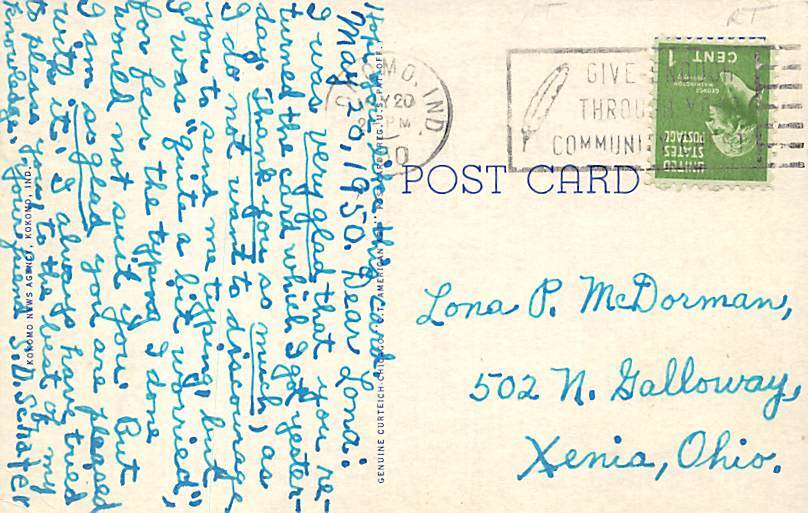 Hope you like this card.
May 20, 1950. Dear Lona:
I was very glad that you re-
turned the card which I got yester-
day. Thank you so much, as
I do not want to discourage
you to send me typing, but
I was "quite a bit worried",
for fear the typing I done
would not suit you. But
I am so glad you are pleased
with it. I always have tried
to please you to the best of my
knowledge. Your friend S.D. Schafer
KOKOMO NEWS AGENCY, KOKOMO, IND.
GENUINE CURTEICH-CHICAGO "C.T. AMERICAN ART" POST CARD (REG. U.S. PAT. OFF.)
POST CARD
KOKOMO, IND.
MAY 20
PM
1950
GIVE
THROUGH YOUR
COMMUNITY
UNITED
STATES
POSTAGE
GEORGE
WASHINGTON
1 CENT
RT
Lona P. McDorman,
502 N. Galloway,
Xenia, Ohio.